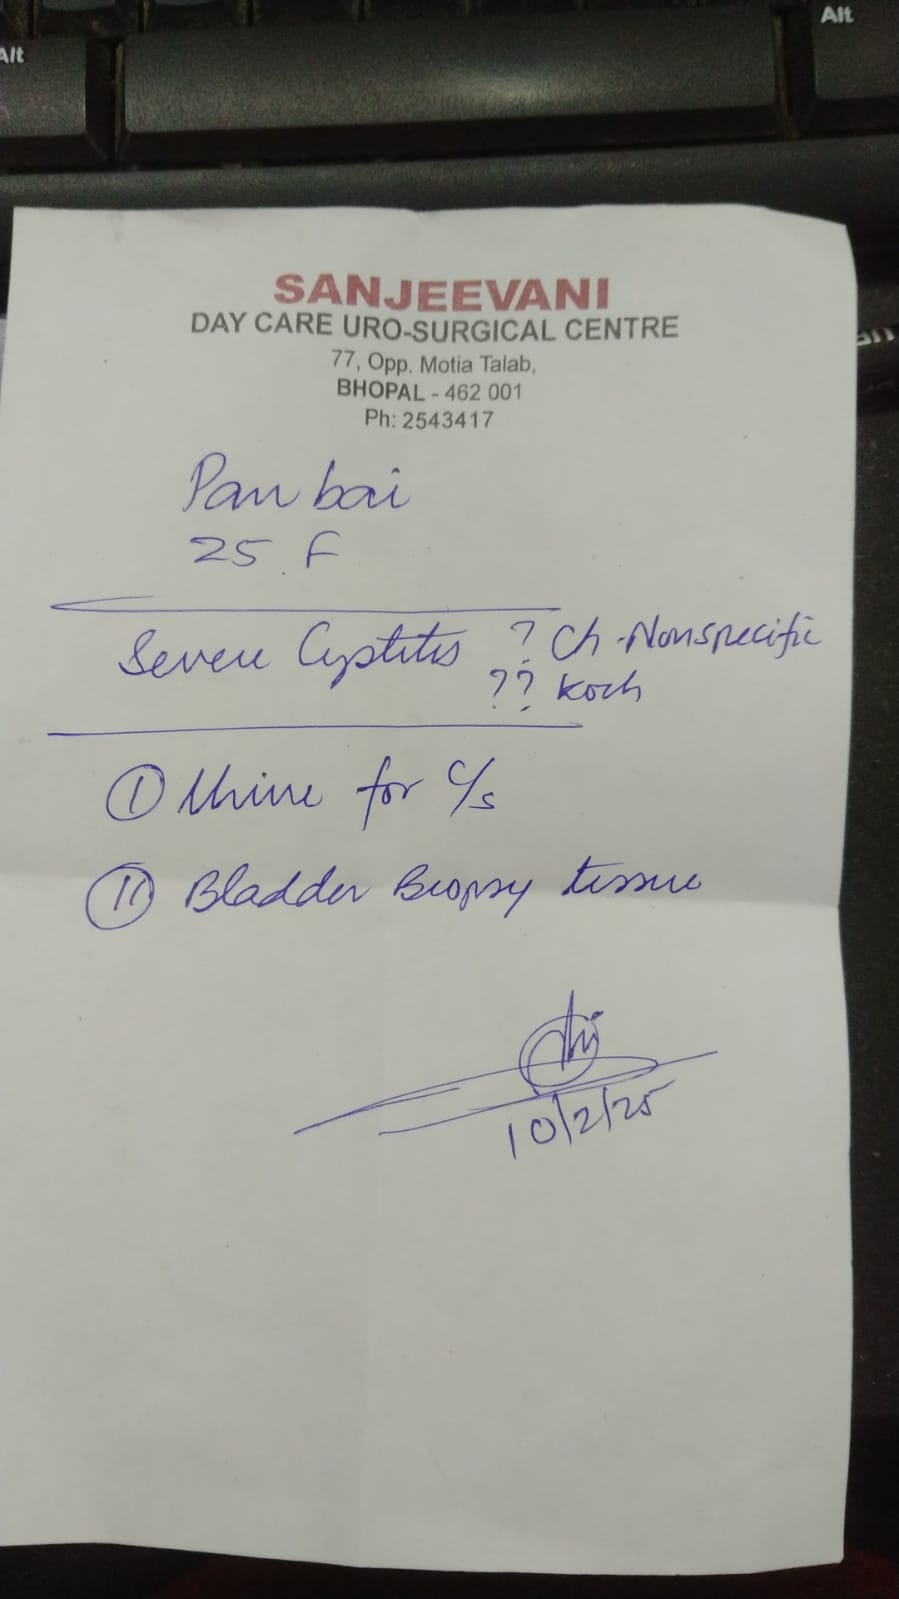 Alt
Alt
SANJEEVANI
DAY CARE URO-SURGICAL CENTRE
77, Opp. Motia Talab,
BHOPAL - 462 001
Ph: 2543417
Pan bai
25 F
Severe Cystitis ? Ch-Nonspecific
?? Koch
① Urine for C/s
⑪ Bladder Biopsy tissue
10/2/25